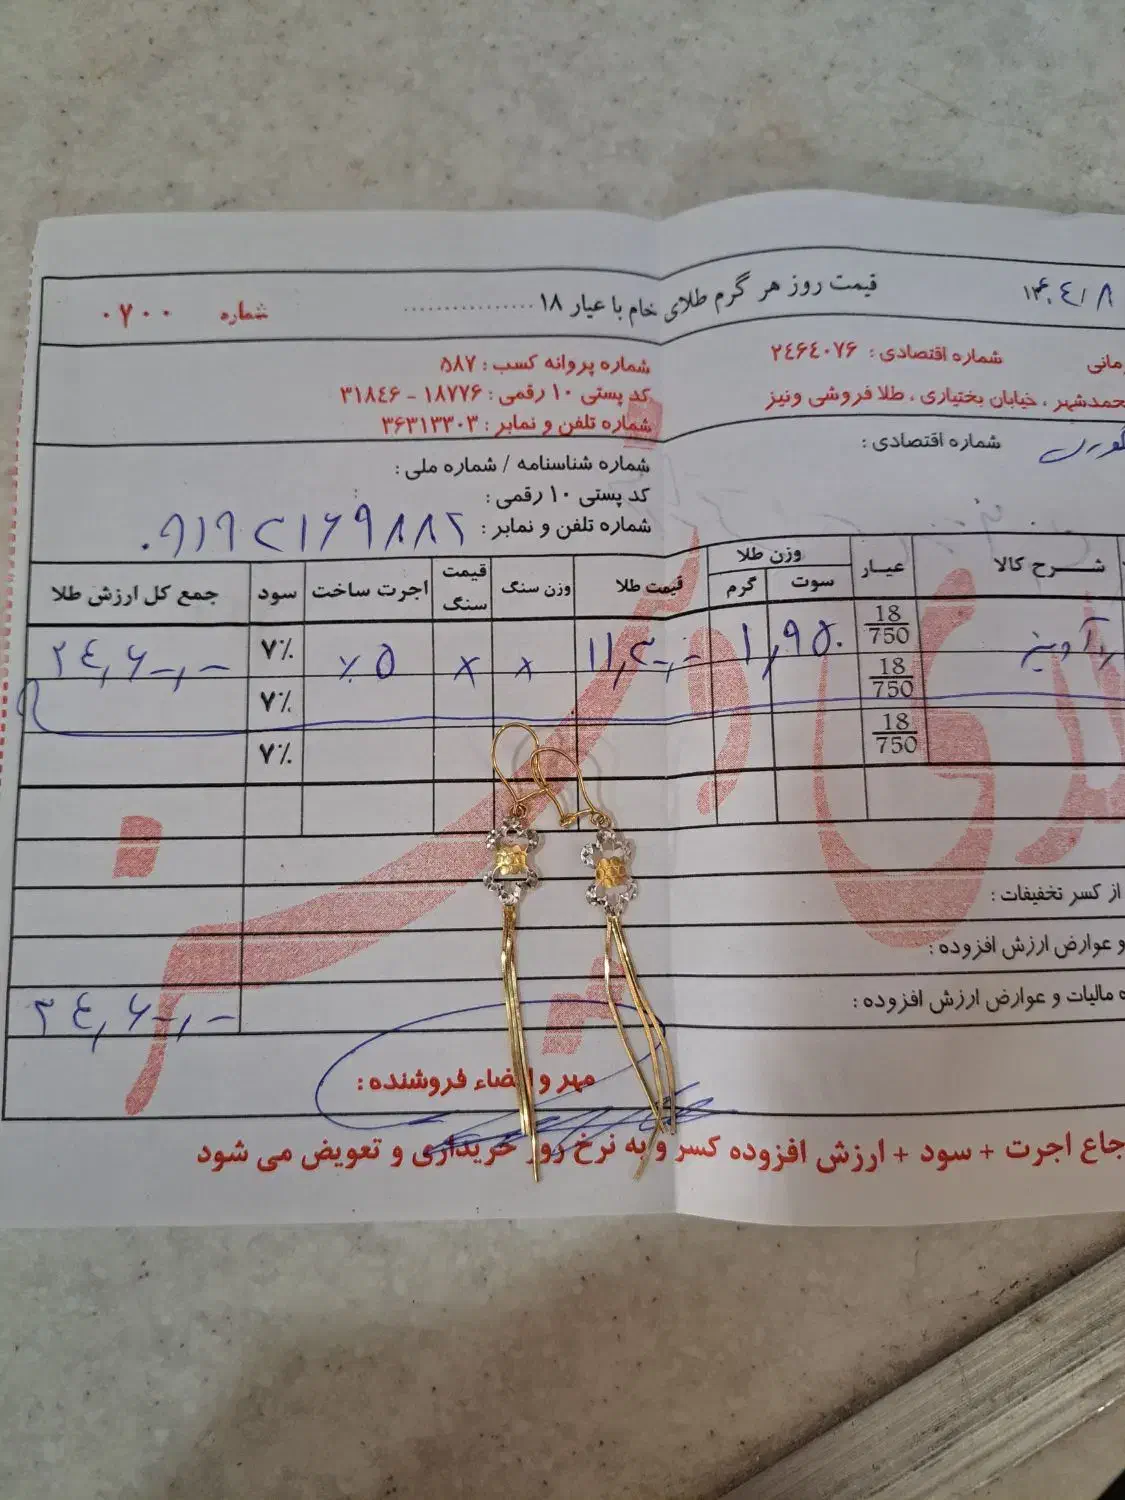 قیمت روز هر گرم طلای خام با عیار ۱۸ ................
شماره ۰۷۰۰
شماره اقتصادی : ۲۴۶۴۰۷۶
شماره پروانه کسب : ۵۸۷
کد پستی ۱۰ رقمی : ۱۸۷۷۶ - ۳۱۸۴۶
حمدشهر ، خیابان بختیاری ، طلا فروشی ونیز
شماره تلفن و نمابر : ۳۶۳۱۳۳۰۳
شماره اقتصادی :
شماره شناسنامه / شماره ملی :
کد پستی ۱۰ رقمی :
شماره تلفن و نمابر : ۰۹۱۹۲۱۶۹۸۸۲
شرح کالا عیار وزن طلا سوت گرم قیمت طلا وزن سنگ قیمت سنگ اجرت ساخت سود جمع کل ارزش طلا
18/750 ۱,۹۵۰ x x ٪۵ ۷٪
18/750 ۷٪
18/750 ۷٪
از کسر تخفیفات :
و عوارض ارزش افزوده :
ه مالیات و عوارض ارزش افزوده :
مهر و امضاء فروشنده :
جاع اجرت + سود + ارزش افزوده کسر و به نرخ روز خریداری و تعویض می شود